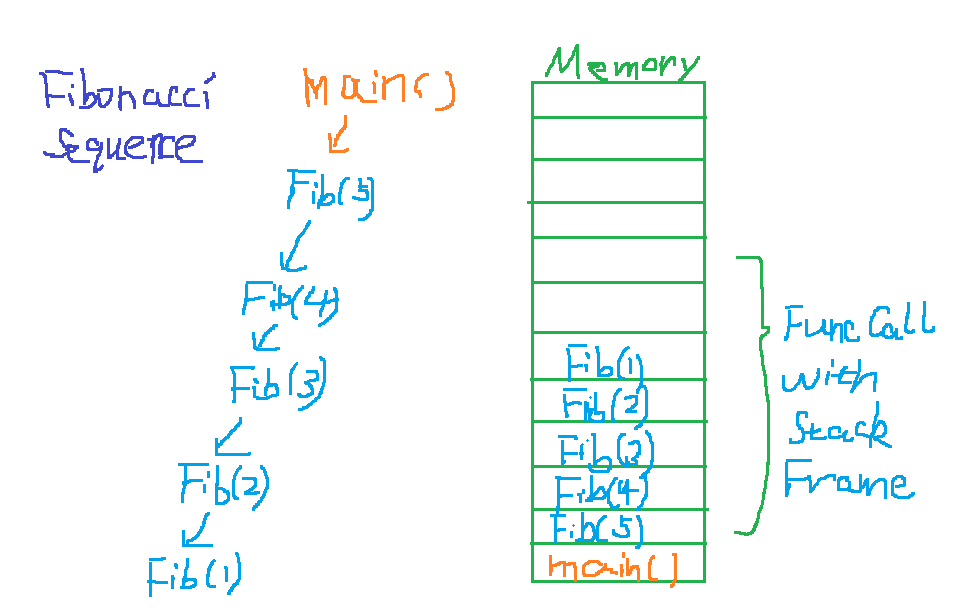 Fibonacci
Sequence
Main()
Fib(5)
Fib(4)
Fib(3)
Fib(2)
Fib(1)
Memory
Fib(1)
Fib(2)
Fib(3)
Fib(4)
Fib(5)
main()
Func Call
with
Stack
Frame